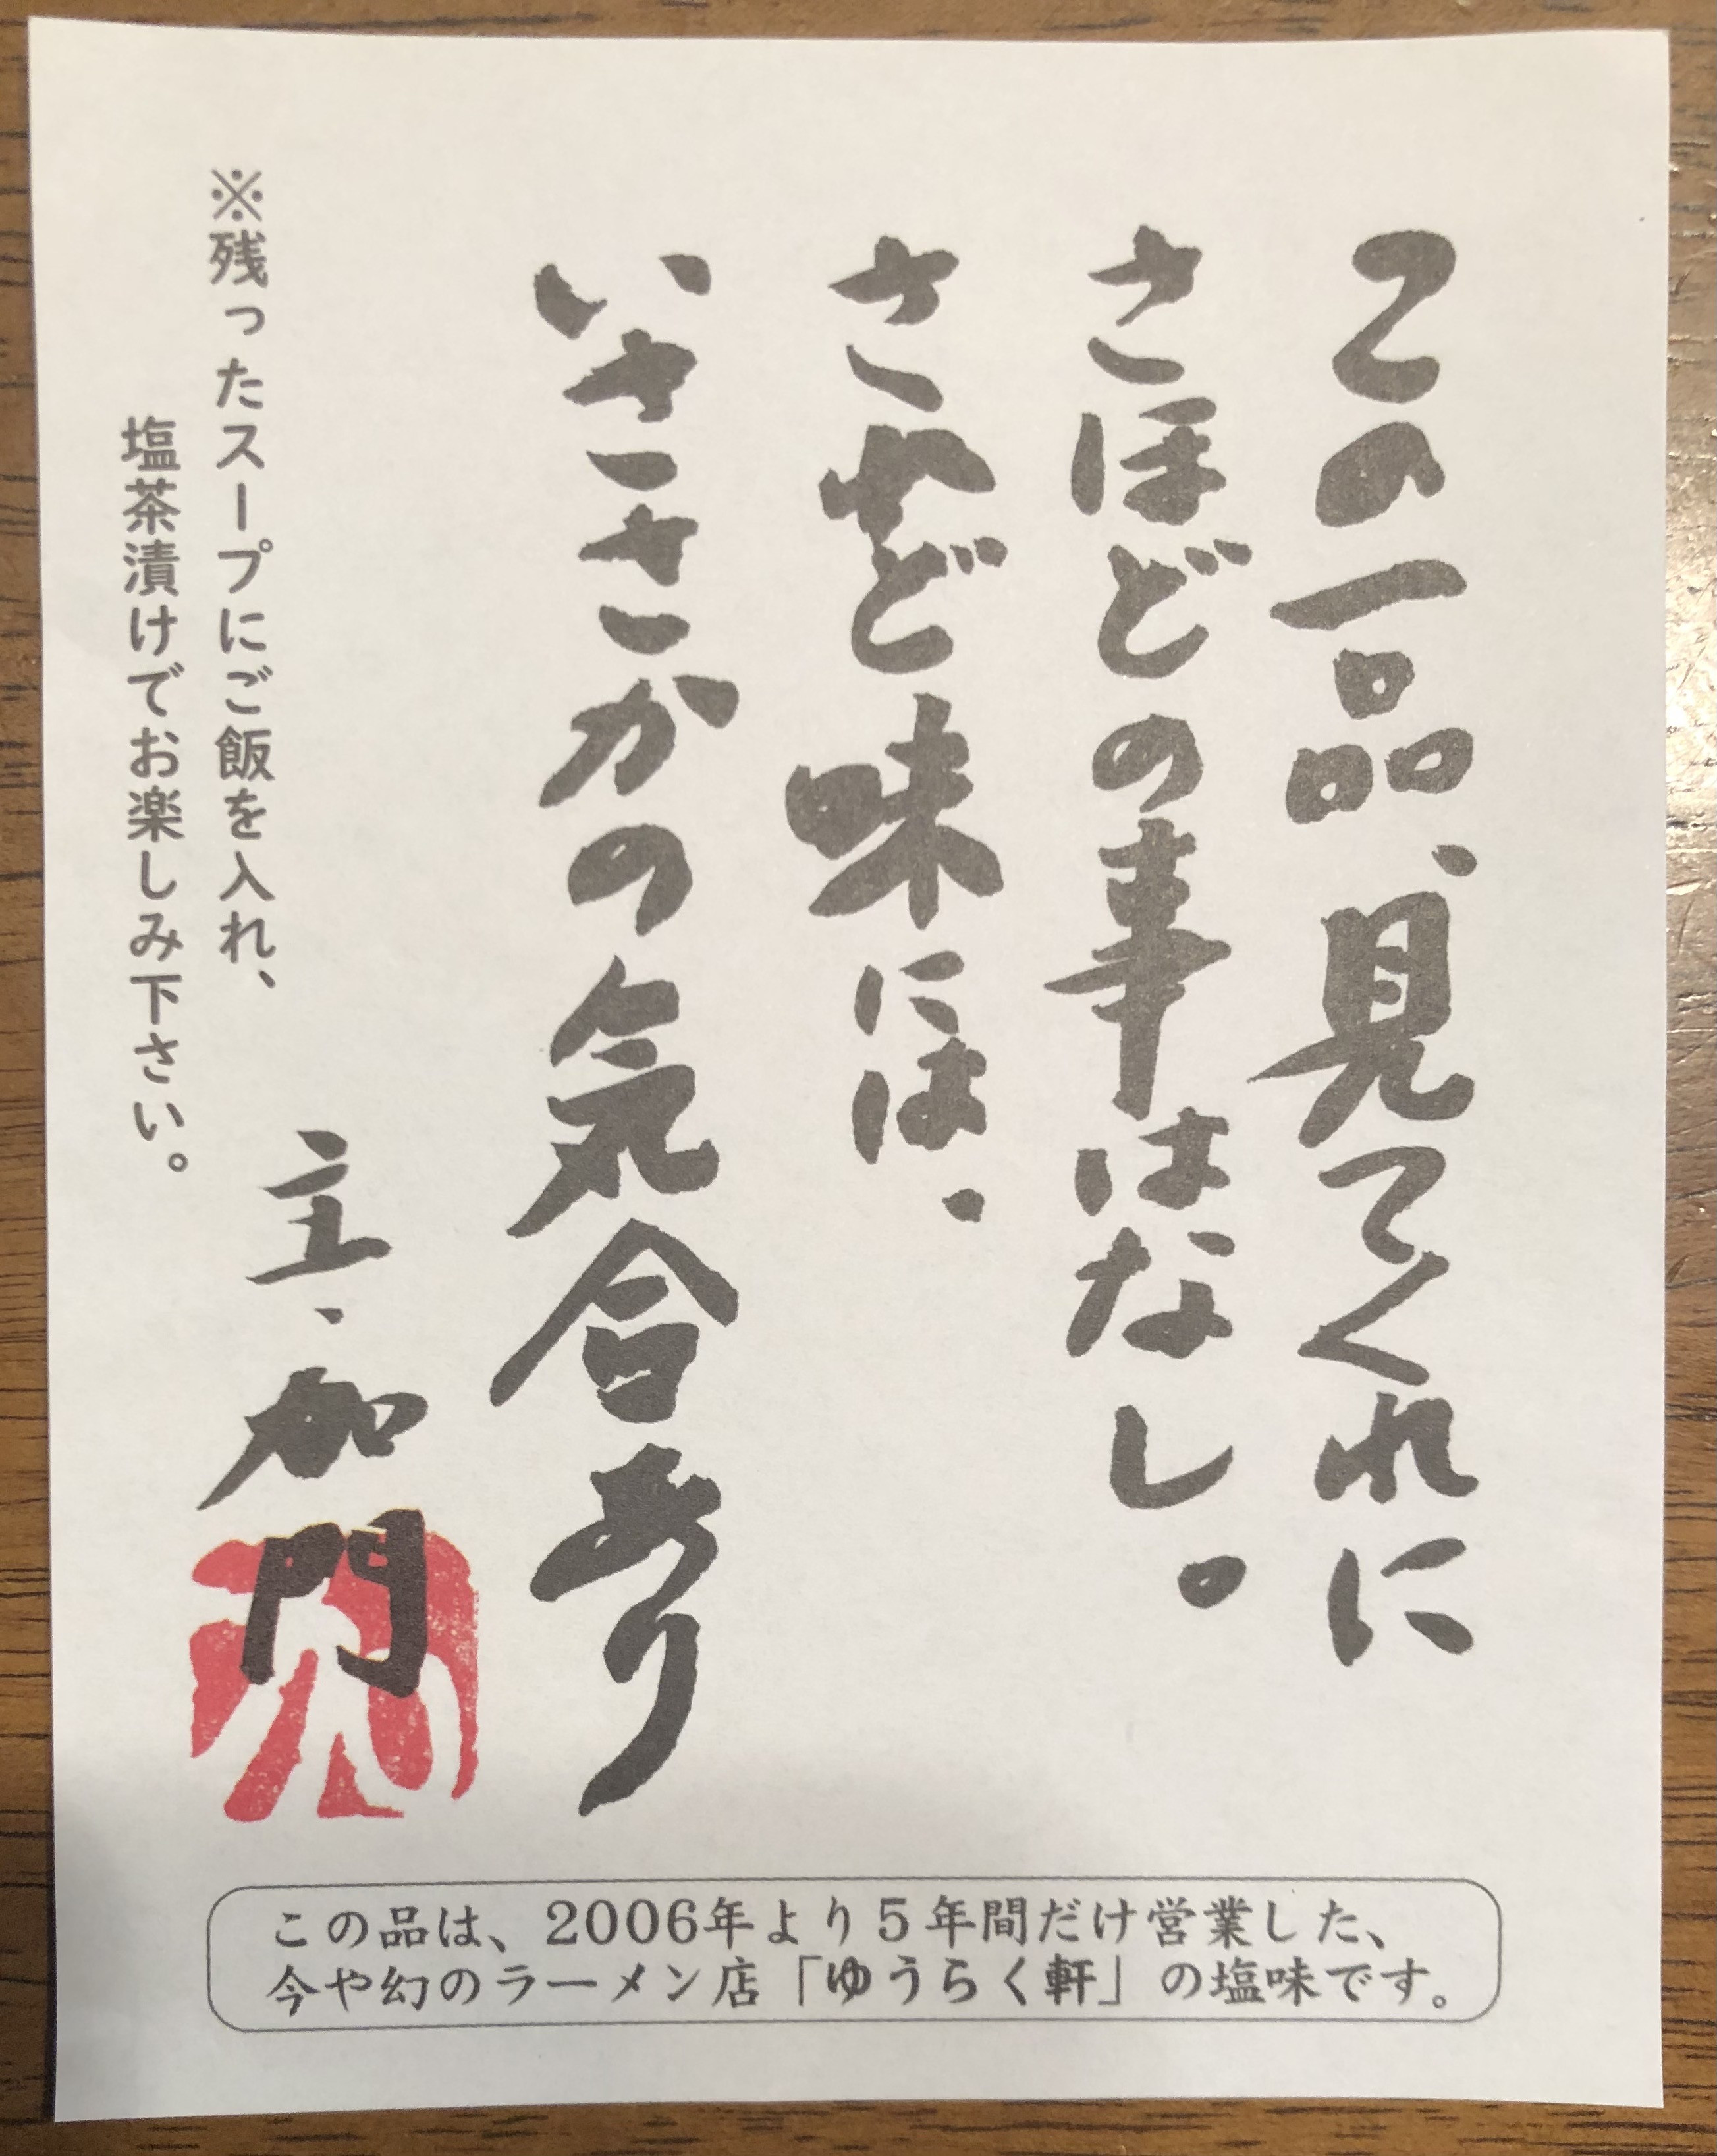 この一品、見てくれに
さほどの事はなし。
されど味には、
いささかの気合あり
主、加門
※残ったスープにご飯を入れ、
塩茶漬けでお楽しみ下さい。
この品は、2006年より５年間だけ営業した、
今や幻のラーメン店「ゆうらく軒」の塩味です。